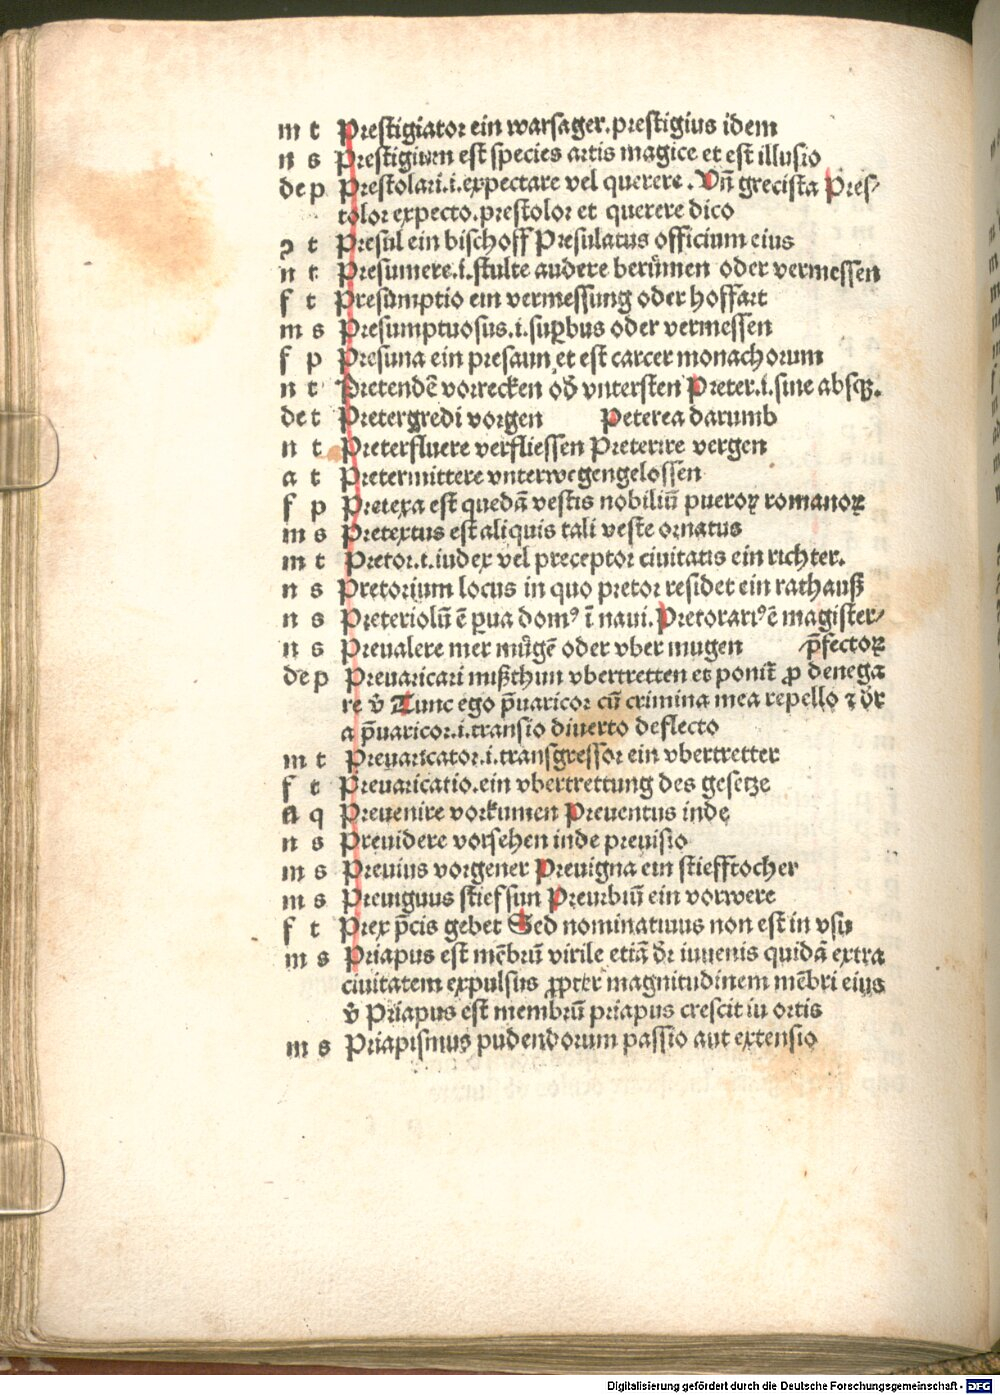 m t Prestigiator ein warsager.prestigius idem
n s Prestigium est species artis magice et est illusio
de p Prestolari.i.expectare vel querere. Vñ grecista Pres⸗
tolor expecto.prestolor et querere dico
ꝯ t Presul ein bischoff Presulatus officium eius
n t Presumere.i.stulte audere berůmen oder vermessen
f t Presumptio ein vermessung oder hoffart
m s Presumptuosus.i.suꝑbus oder vermessen
f p Presuna ein presaun et est carcer monachorum
n t Pretendē vorrecken oď vntersten Preter.i.sine absqꝫ.
de t Pretergredi vorgen Peterea darumb
n t Preterfluere verfliessen Preterire vergen
a t Pretermittere vnterwegengelossen
f p Pretexa est quedā vestis nobiliū pueroꝝ romanoꝝ
m s Pretextus est aliquis tali veste ornatus
m t Pretor.i.iudex vel preceptor ciuitatis ein richter.
n s Pretorium locus in quo pretor residet ein rathauß
n s Preteriolū ē ꝑua domꝰ ī naui. Pretorariꝰ ē magister⸗
n s Preualere mer můgē oder vber mugen p̄fectoꝝ
de p Preuaricari mißthun vbertretten et ponit̄ ꝓ denega
re v̄ Tunc ego p̄uaricor cū crimina mea repello ⁊ dr̄
a p̄uaricor.i.transio diuerto deflecto
m t Preuaricator.i.transgressor ein vbertretter
f t Preuaricatio.ein vbertrettung des gesetze
a q Preuenire vorkumen Preuentus inde
n s Preuidere vorsehen inde preuisio
m s Preuius vorgener Preuigna ein stiefftocher
m s Preuignus stief sun Preurbiū ein vorwere
f t Prex p̄cis gebet Sed nominatiuus non est in vsu
m s Priapus est mēbrū virile etiā dr̄ iuuenis quidā extra
ciuitatem expulsus ꝓpter magnitudinem mēbri eius
v̄ Priapus est membrū priapus crescit in ortis
m s Priapismus pudendorum passio aut extensio
Digitalisierung gefördert durch die Deutsche Forschungsgemeinschaft - DFG